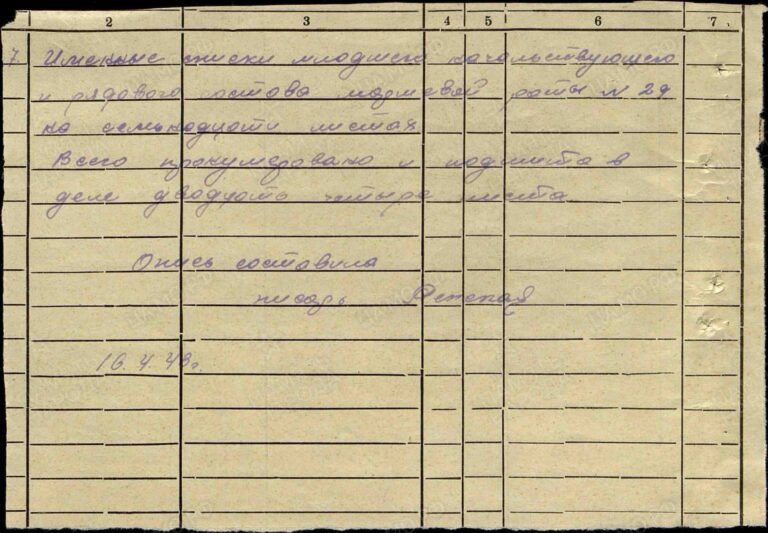 2 3 4 5 6 7
7 Именные списки младшего начальствующего
и рядового состава маршевой роты N 29
на семьнадцати листах
Всего пронумеровано и подшито в
деле двадцать четыре листа
Опись составила
писарь
16.4.43г.